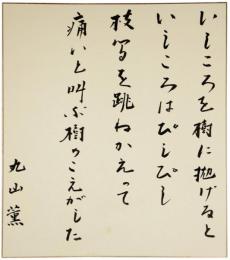 いしころを樹に抛げると
いしころはぴしぴし
枝々を跳ねかえって
痛いと叫ぶ樹のこえがした
丸山薫